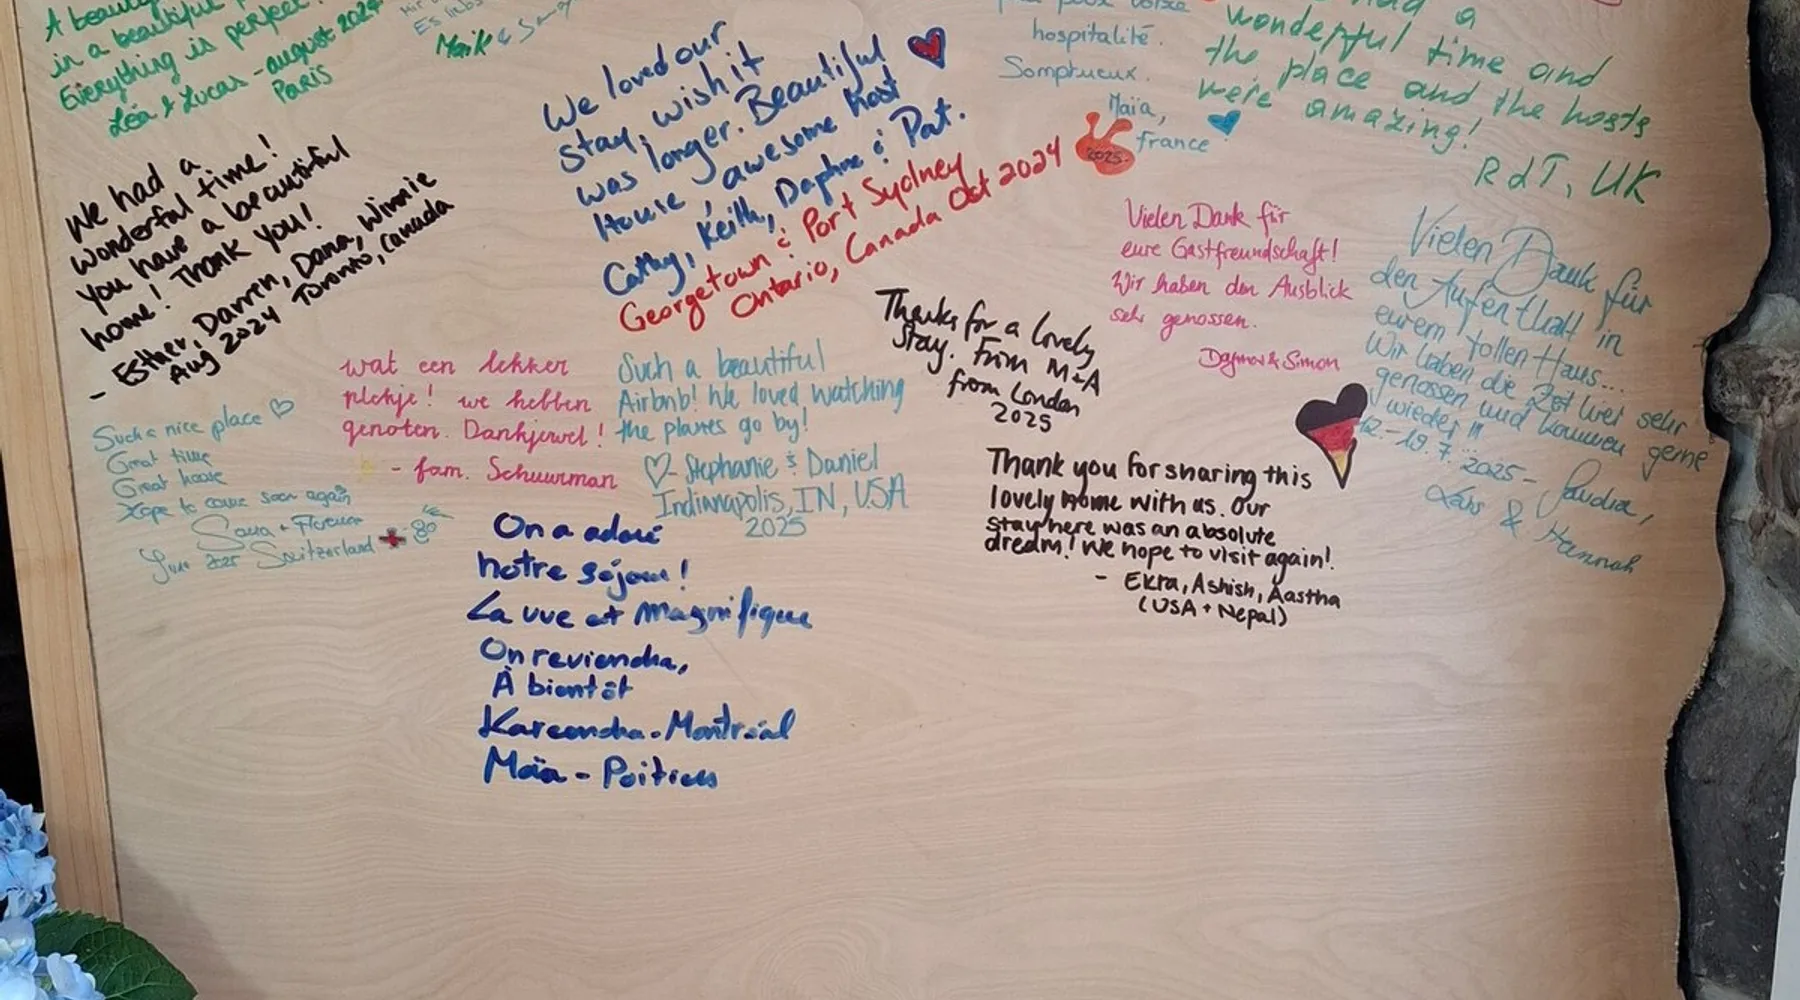 A
in a beautiful
Everything is perfect!
Léa & Lucas - august 2024
PARIS
Es
Maik &
We loved our
stay, wish it
was longer. Beautiful
House, awesome host
Cathy, Keith, Daphne & Pat.
Georgetown & Port Sydney
Ontario, Canada Oct 2024
pour
hospitalité.
Somptueux.
Maïa,
france
2025
had a
wonderful time and
the place and the hosts
were amazing!
RdT, UK
We had a
wonderful time!
You have a beautiful
home! Thank you!
- Esther, Darren, Dana, Winnie
Aug 2024 Toronto, Canada
Vielen Dank für
eure Gastfreundschaft!
Wir haben den Ausblick
sehr genossen.
Dagmar & Simon
Vielen Dank für
den Aufenthalt in
eurem tollen Haus...
Wir haben die Zeit hier sehr
genossen und kommen gerne
wieder!!!
12.-19.7.2025 -
Lars & Hannah
Thanks for a lovely
Stay. From M+A
from London
2025
wat een lekker
plekje! we hebben
genoten. Dankjewel!
- fam. Schuurman
Such a beautiful
Airbnb! We loved watching
the planes go by!
- Stephanie & Daniel
Indianapolis, IN, USA
2025
Such a nice place
Great time
Great house
Hope to come soon again
June 2025 Switzerland
Thank you for sharing this
lovely home with us. Our
stay here was an absolute
dream! We hope to visit again!
- Ekta, Ashish, Aastha
(USA + Nepal)
On a adoré
notre séjour!
La vue et magnifique
On reviendra,
À bientôt
Montréal
Maïa - Poitiers